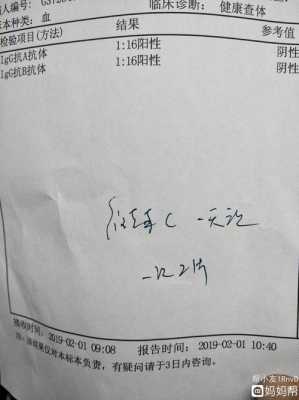 临床诊断: 健康查体
标本种类: 血
检验项目(方法) 结果 参考值
IgG抗A抗体 1:16阳性 阴性
IgG抗B抗体 1:16阳性 阴性
维生素C 一天
一次2片
接收时间: 2019-02-01 09:08 报告时间: 2019-02-01 10:40
注: 该结果仅对本标本负责, 有疑问请于3日内咨询。
帮小友1Rnv0
妈妈帮